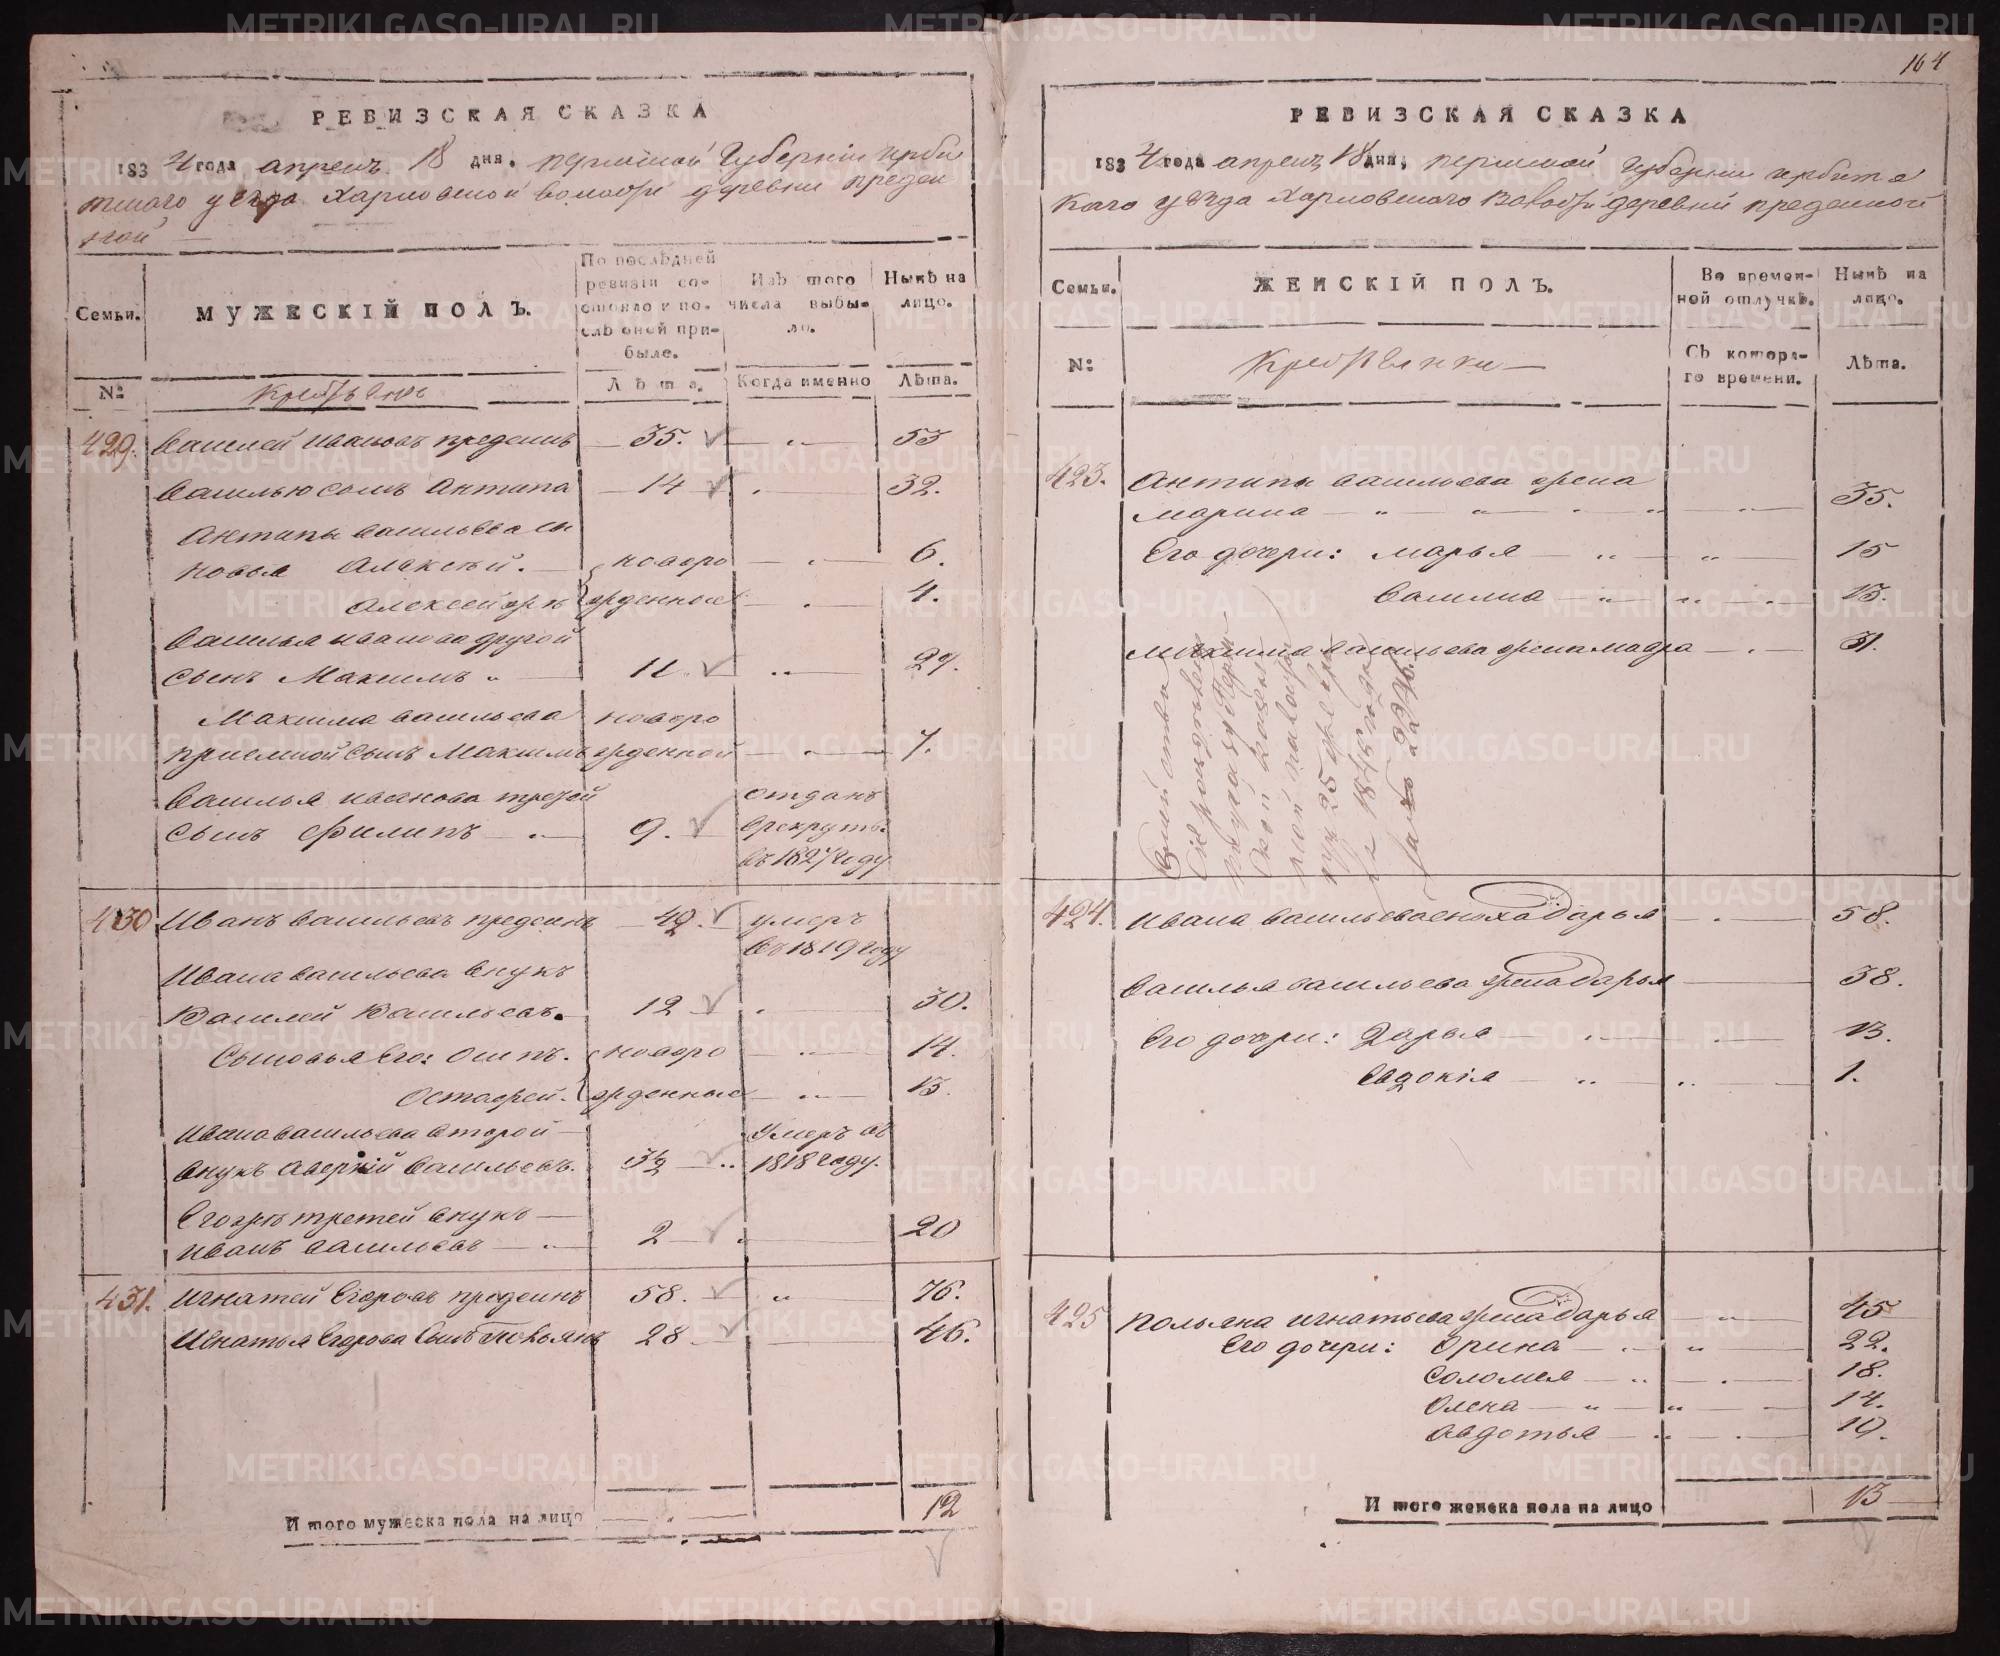 164
РЕВИЗСКАЯ СКАЗКА
1834 года апреля 18 дня. пермской Губернии ирби
тскаго уезда Харловской волости деревни предеи
ной
Семьи.
МУЖЕСКІЙ ПОЛЪ.
По послѣдней ревизіи состояло и послѣ оной прибыле.
Изъ того числа выбыло.
Нынѣ на лицо.
№
Крестьяне
Лѣта.
Когда именно
Лѣта.
429. Василей Ивановъ предеинъ 35. 53
Василью сынъ Антипа 14 32.
Антипы васильева сы
новья Алексей. новоро 6.
Алексей жъ жденные 4.
Василья иванова другой
сынъ Максимъ 11. 29.
Максима васильева новоро
приемной сынъ Максимъ жденной 7.
Василья иванова третей отданъ
сынъ Филипъ 9. врекруты
въ 1827 году
430 Иванъ васильевъ предеинъ 42. умеръ
въ 1819 году
Ивана васильева внукъ
Василей Васильевъ. 12 30.
Сыновья Его: Осипъ. новоро 14.
Остафей. жденные 13.
Ивана васильева второй умеръ въ
внукъ аверкій васильевъ. 3½ 1818 году.
Егожъ третей внукъ
иванъ васильевъ 2 20
431. Игнатей Егоровъ предеинъ 58. 76.
Игнатья Егорова сынъ Польянъ 28 46.
И того мужеска пола на лицо 12
РЕВИЗСКАЯ СКАЗКА
1834 года апреля 18 дня, пермской губернии ирбитс
каго уѣзда Харловскаго волости деревни предеиной
Семьи.
ЖЕНСКІЙ ПОЛЪ.
Во временной отлучкѣ.
Нынѣ на лицо.
№:
Крестьянки
Съ котораго времени.
Лѣта.
423. Антипы васильева жена
марина 35.
Его дочери: марья 15
Василиа 13.
Максима васильева жена 31.
424. Ивана васильева сноха Дарья 58.
Василья васильева жена Дарья 38.
Его дочери: Дарья 13.
Евдокія 1.
425 Польяна игнатьева жена Дарья 45
Его дочери: Орина 22.
Соломея 18.
Олена 14.
Авдотья 10.
И того женска пола на лицо 13
METRIKI.GASO-URAL.RU